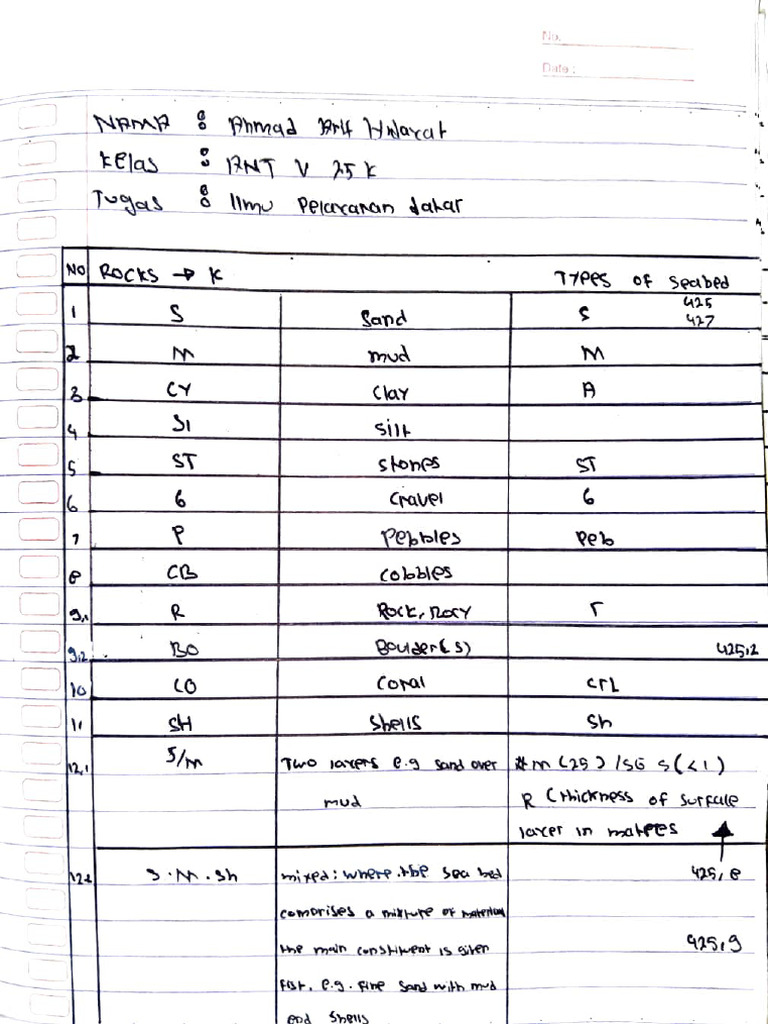 No.
Date :
NAMA : Ahmad Arif Hidayat
Kelas : ANT V 25 K
Tugas : Ilmu Pelayaran datar
NO ROCKS → K TYPES OF Seabed
1 S Sand S 425
427
2 M mud M
3 CY Clay A
4 SI silt
5 ST stones ST
6 G Gravel G
7 P Pebbles Peb
8 CB cobbles
9,1 R Rock, Rocy r
9,2 BO Boulder(s) 425,2
10 CO Coral CrL
11 SH Shells Sh
12,1 S/M Two layers e.g sand over #M (25) / SG S (<1)
mud R (thickness of surface
layer in matees
12,2 S.M.Sh mixed: where the sea bed 425,8
comprises a mixture of material
the main constituent is given 425,9
fist, e.g. fine sand with mud
end shells